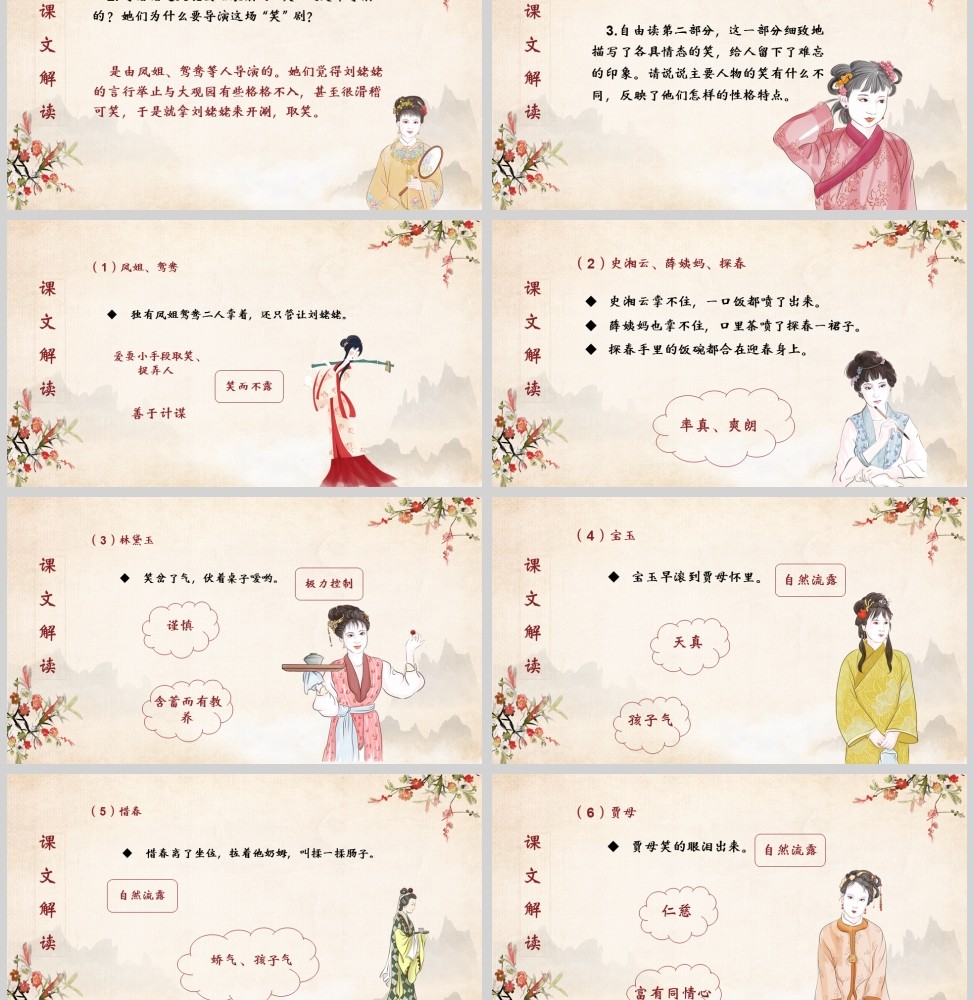 课文解读
的？她们为什么要导演这场“笑”剧？
是由凤姐、鸳鸯等人导演的。她们觉得刘姥姥
的言行举止与大观园有些格格不入，甚至很滑稽
可笑，于是就拿刘姥姥来开涮，取笑。
课文解读
3.自由读第二部分，这一部分细致地
描写了各具情态的笑，给人留下了难忘
的印象。请说说主要人物的笑有什么不
同，反映了他们怎样的性格特点。
课文解读
（1）凤姐、鸳鸯
◆ 独有凤姐鸳鸯二人拿着，还只管让刘姥姥。
爱耍小手段取笑、
捉弄人
笑而不露
善于计谋
课文解读
（2）史湘云、薛姨妈、探春
◆ 史湘云拿不住，一口饭都喷了出来。
◆ 薛姨妈也拿不住，口里茶喷了探春一裙子。
◆ 探春手里的饭碗都合在迎春身上。
率真、爽朗
课文解读
（3）林黛玉
◆ 笑岔了气，伏着桌子嗳哟。
极力控制
谨慎
含蓄而有教
养
课文解读
（4）宝玉
◆ 宝玉早滚到贾母怀里。
自然流露
天真
孩子气
课文解读
（5）惜春
◆ 惜春离了坐位，拉着他奶姆，叫揉一揉肠子。
自然流露
娇气、孩子气
课文解读
（6）贾母
◆ 贾母笑的眼泪出来。
自然流露
仁慈
富有同情心